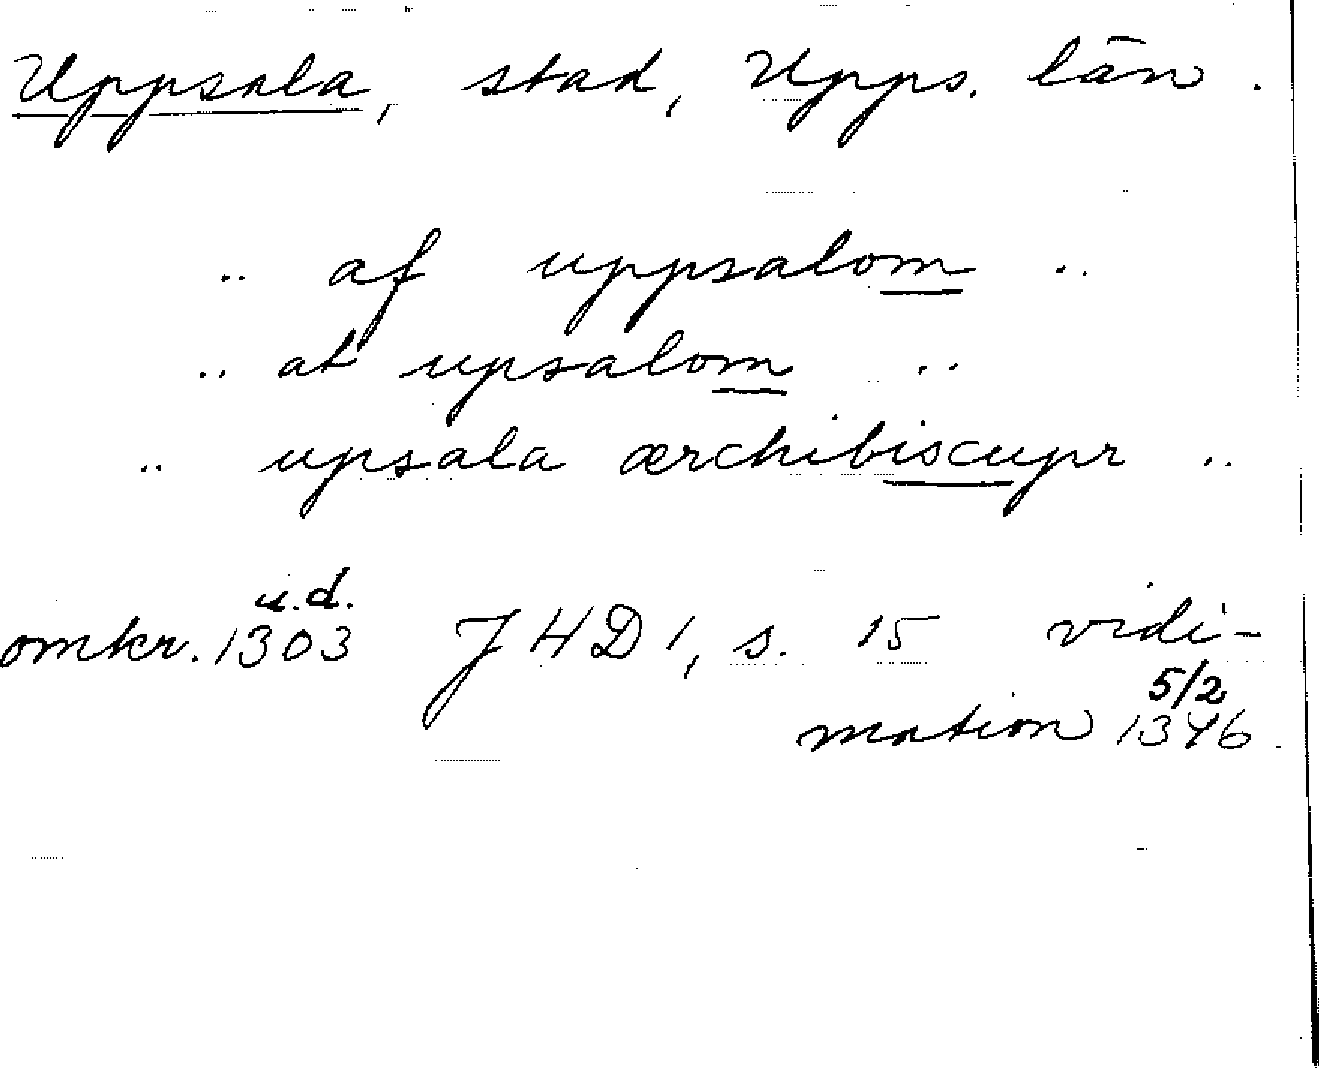 Uppsala, stad, Upps. län.
.. af uppsalom ..
.. at upsalom ..
.. upsala ærchibiscupr ..
u.d.
omkr. 1303 JHD 1, s. 15 vidi-
5/2
mation 1346.